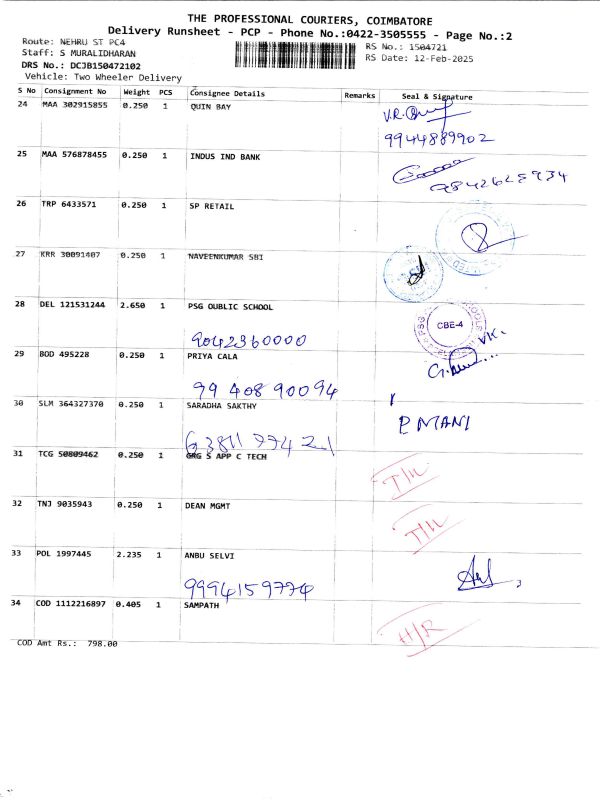 THE PROFESSIONAL COURIERS, COIMBATORE
Delivery Runsheet - PCP - Phone No.:0422-3505555 - Page No.:2
Route: NEHRU ST PC4
RS No.: 1504721
Staff: S MURALIDHARAN
RS Date: 12-Feb-2025
DRS No.: DCJB150472102
Vehicle: Two Wheeler Delivery
S No Consignment No Weight PCS Consignee Details Remarks Seal & Signature
24 MAA 302915855 0.250 1 QUIN BAY
9944889902
25 MAA 576878455 0.250 1 INDUS IND BANK
26 TRP 6433571 0.250 1 SP RETAIL
27 KRR 30091407 0.250 1 NAVEENKUMAR SBI
28 DEL 121531244 2.650 1 PSG OUBLIC SCHOOL
CBE-4
9042360000
29 BOD 495228 0.250 1 PRIYA CALA
99 408 90094
30 SLM 364327370 0.250 1 SARADHA SAKTHY
P MANI
31 TCG 50809462 0.250 1 GRG S APP C TECH
T/H
32 TNJ 9035943 0.250 1 DEAN MGMT
T/H
33 POL 1997445 2.235 1 ANBU SELVI
9994159774
34 COD 1112216897 0.405 1 SAMPATH
H/R
COD Amt Rs.: 798.00